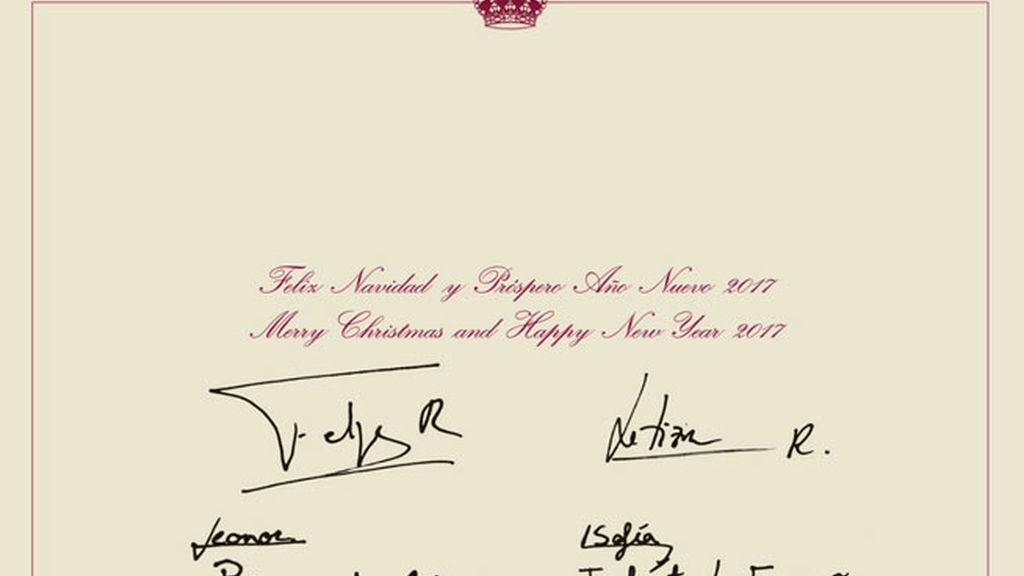 Feliz Navidad y Próspero Año Nuevo 2017
Merry Christmas and Happy New Year 2017
Felipe R
Letizia R.
Leonor
Sofía